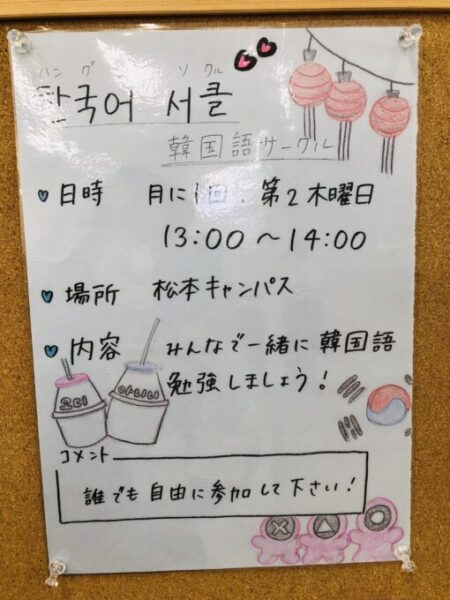 ハング ソクル
한국어 서클
韓国語サークル
日時 月に1回、第2木曜日
13:00〜14:00
場所 松本キャンパス
内容 みんなで一緒に韓国語
勉強しましょう!
コメント
誰でも自由に参加して下さい!